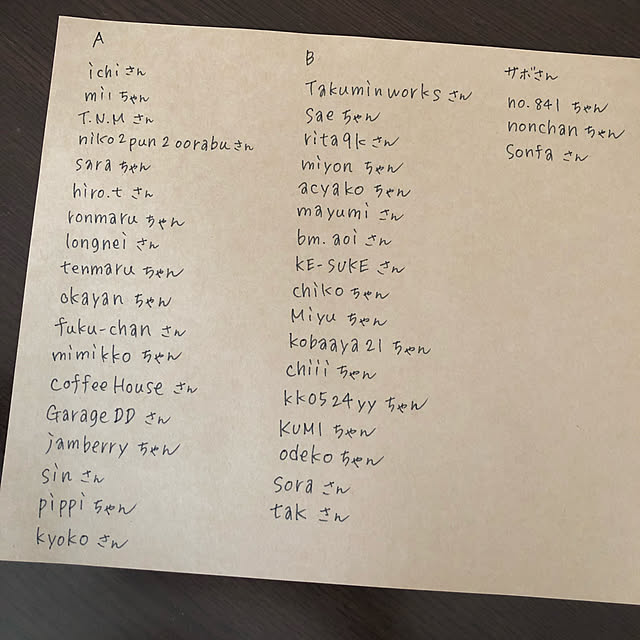 A
ichi さん
mii ちゃん
T.N.M さん
niko2pun2oorabu さん
sara ちゃん
hiro.t さん
ronmaru ちゃん
longnei さん
tenmaru ちゃん
okayan ちゃん
fuku-chan さん
mimikko ちゃん
coffee House さん
Garage DD さん
jamberry ちゃん
sin さん
pippi ちゃん
kyoko さん
B
Takuminworks さん
sae ちゃん
rita9k さん
miyon ちゃん
acyako ちゃん
mayumi さん
bm.aoi さん
KE-SUKE さん
chiko ちゃん
Miyu ちゃん
kobaaya21 ちゃん
chiii ちゃん
kk0524yy ちゃん
KUMI ちゃん
odeko ちゃん
sora さん
tak さん
サボさん
no.841 ちゃん
nonchan ちゃん
Sonfa さん